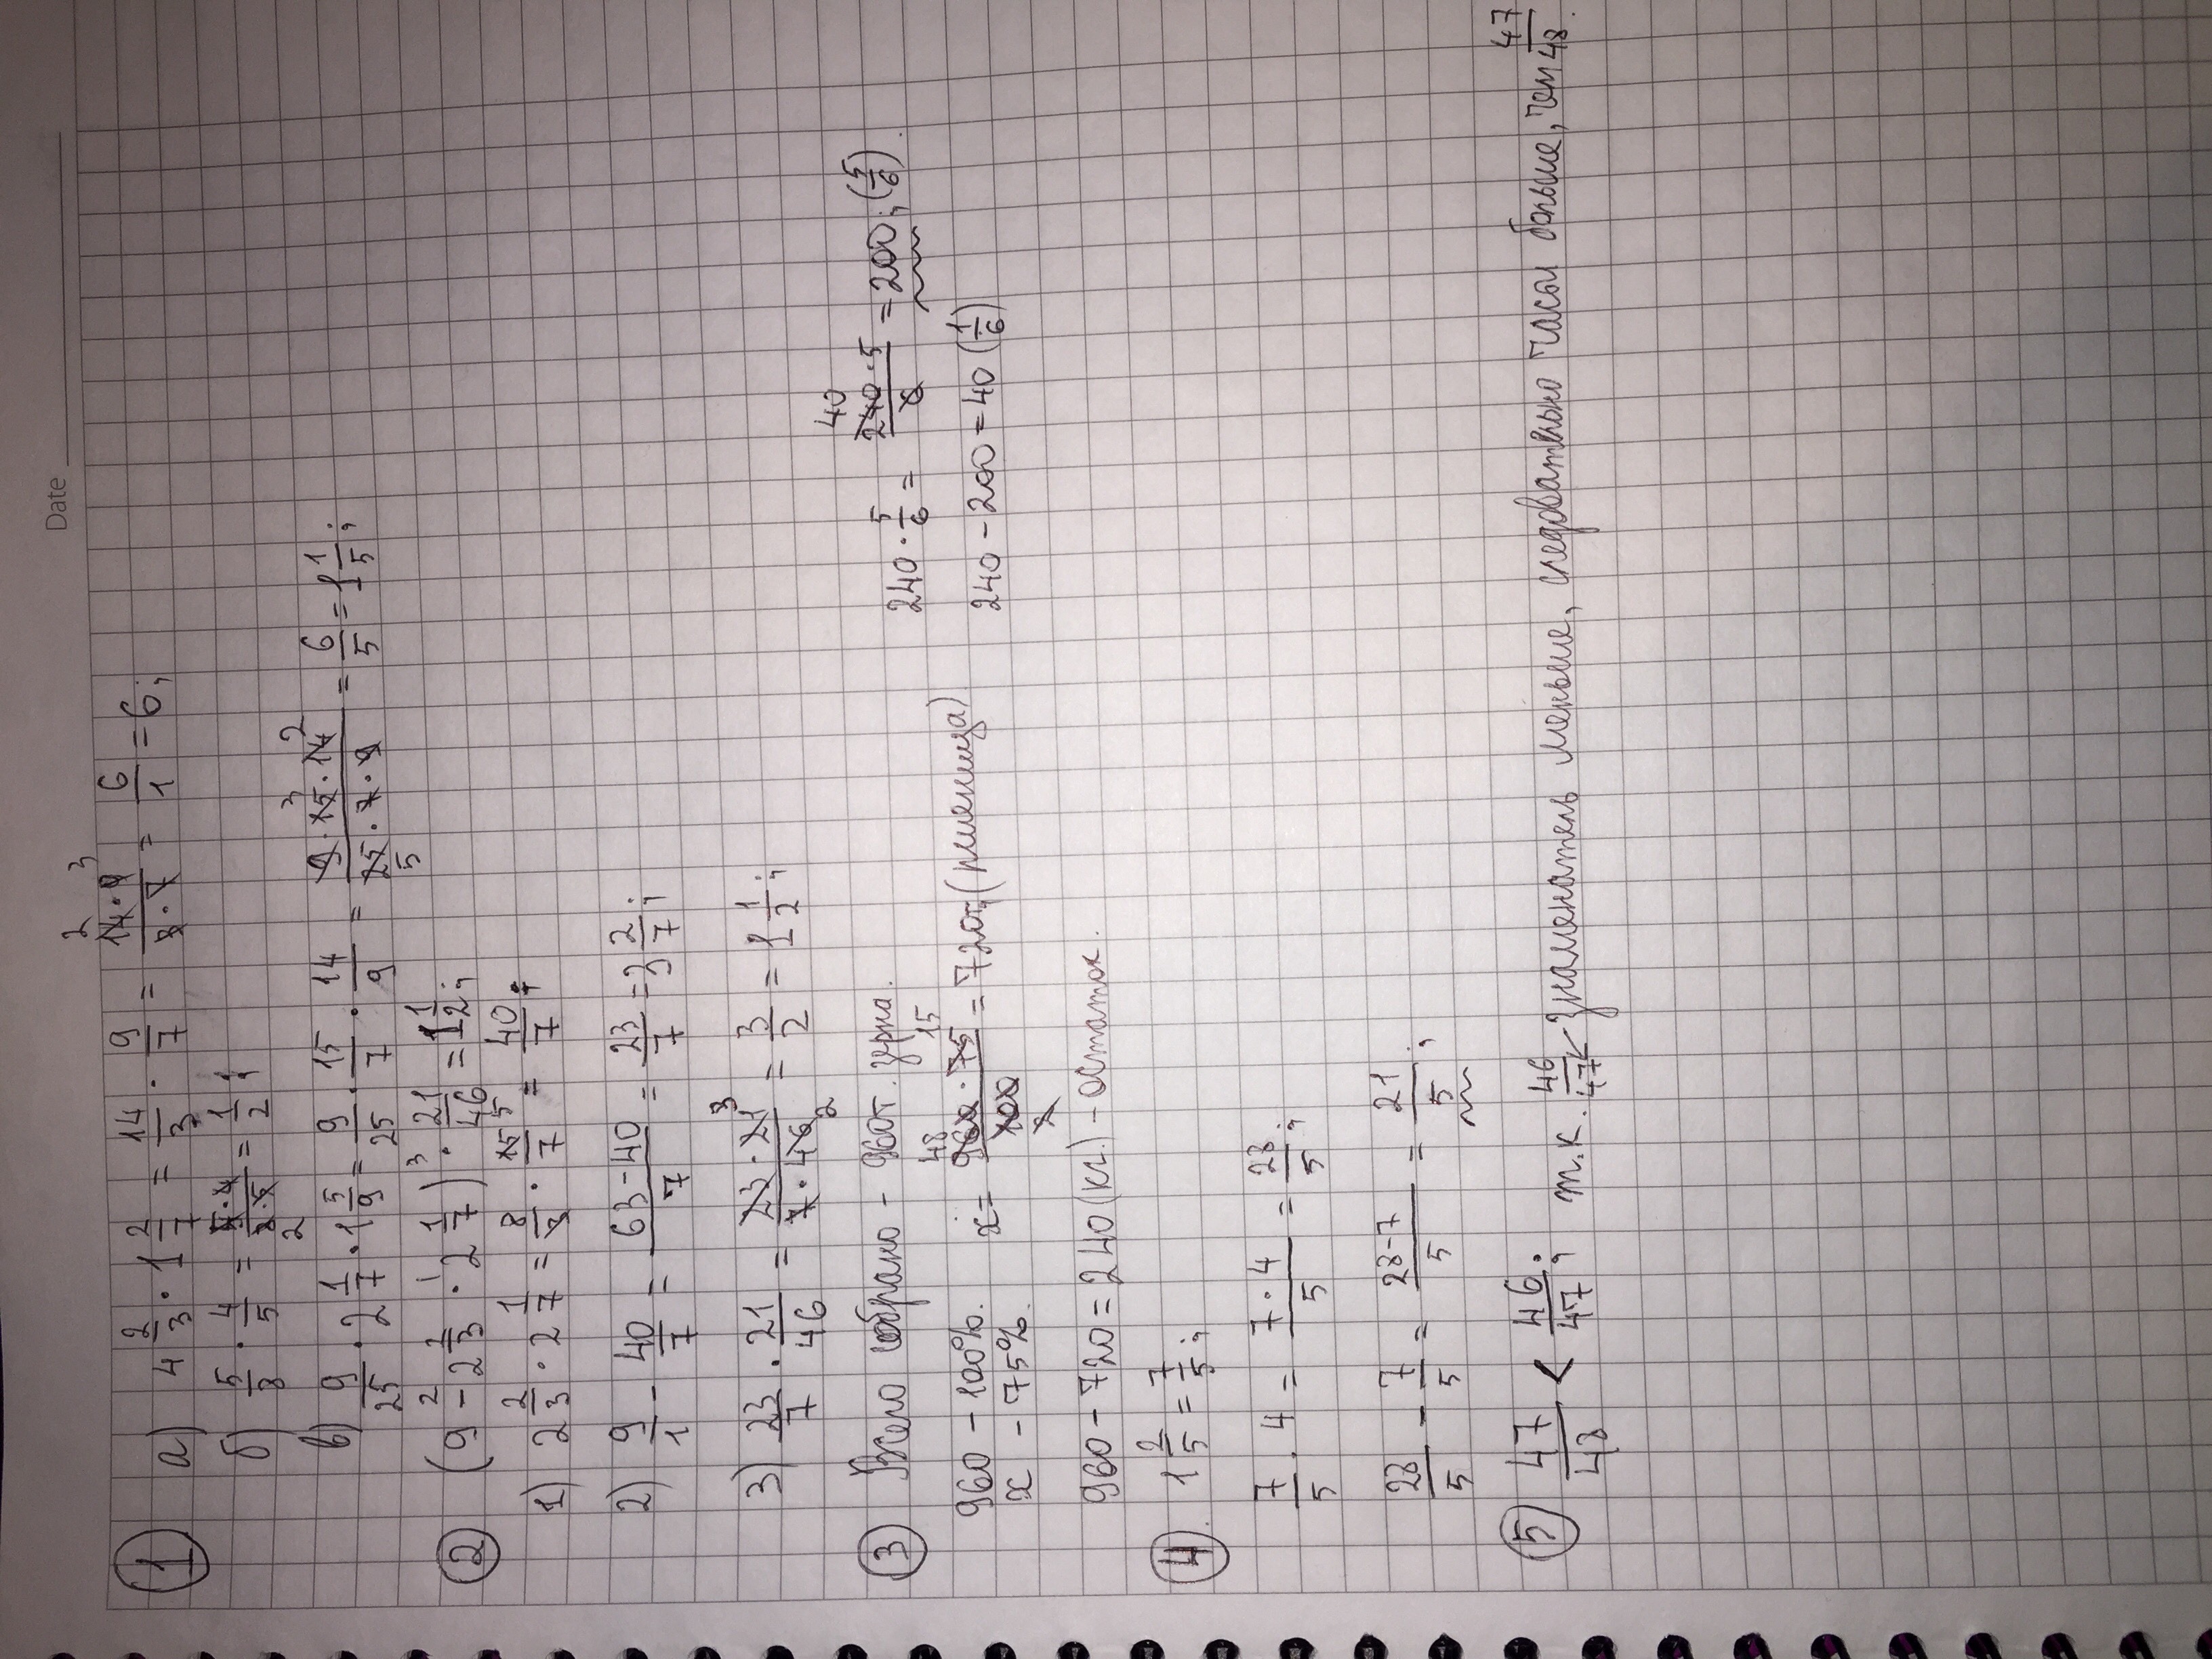 Date
① а) 4 2/3 · 1 2/7 = 14/3 · 9/7 = 14·9/3·7 = 6/1 = 6;
2 3
б) 5/8 · 4/5 = 5·4/8·5 = 1/2;
2
в) 9/25 · 2 1/7 · 1 5/9 = 9/25 · 15/7 · 14/9 = 9·15·14/25·7·9 = 6/5 = 1 1/5;
3 2
5
② (9 - 2 2/3 · 2 1/7) · 21/46 = 1 1/2;
2 1 3
1) 2 2/3 · 2 1/7 = 8/3 · 15/7 = 40/7;
5
2) 9/1 - 40/7 = 63-40/7 = 23/7 = 3 2/7;
3) 23/7 · 21/46 = 23·21/7·46 = 3/2 = 1 1/2;
3
2
③ Всего собрано - 960т. зерна.
960 - 100%.
x - 75%.
x = 960·75/100 = 720т, (пшеница)
48 15
960 - 720 = 240 (кг.) - остаток.
240 · 5/6 = 240·5/6 = 200; (5/6).
40
240 - 200 = 40 (1/6)
④ 1 2/5 = 7/5;
7/5 · 4 = 7·4/5 = 28/5;
28/5 - 7/5 = 28-7/5 = 21/5;
⑤ 47/48 < 46/47; т.к. 46/47 ← знаменатель меньше, следовательно часы больше, чем 47/48.